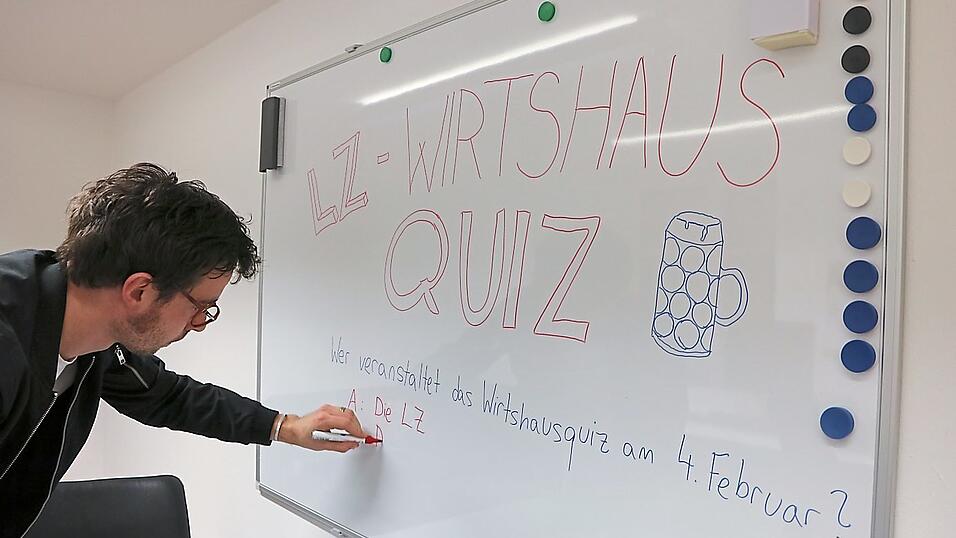 LZ-WIRTSHAUS
QUIZ
Wer veranstaltet das Wirtshausquiz am 4. Februar?
A: Die LZ